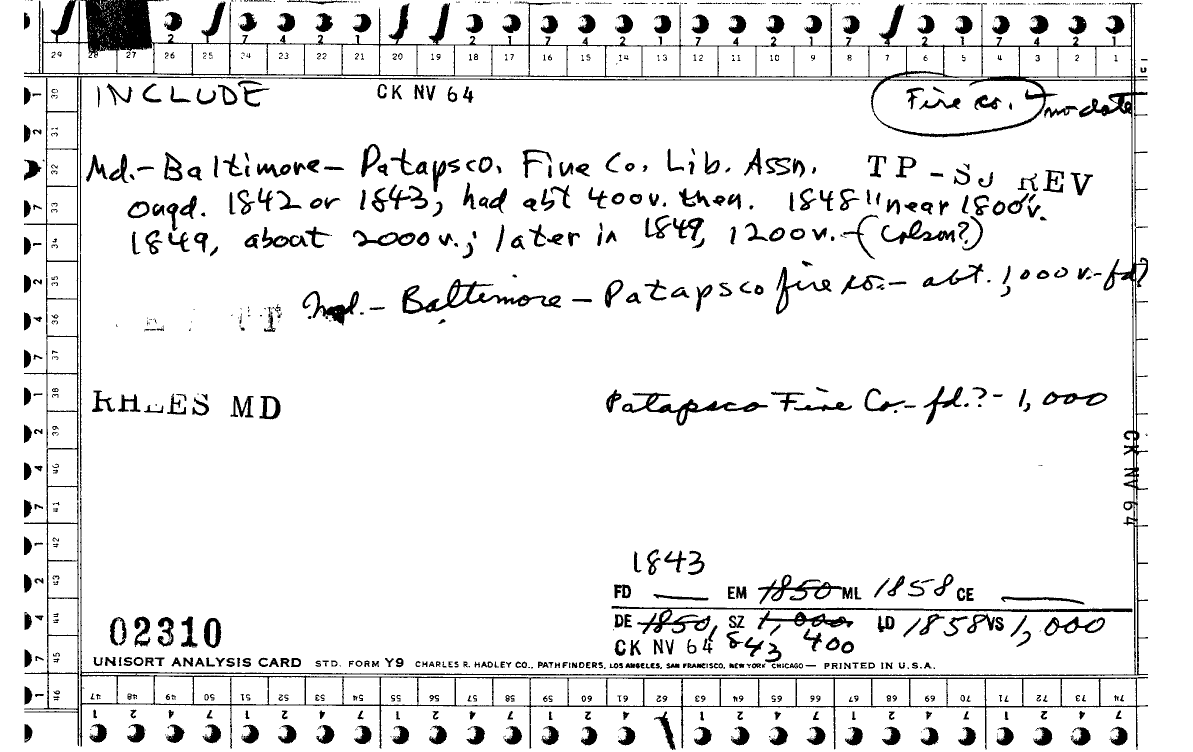 29 28 27 26 25 24 23 22 21 20 19 18 17 16 15 14 13 12 11 10 9 8 7 6 5 4 3 2 1
INCLUDE CK NV 64 Fire co. no date
Md.-Baltimore-Patapsco. Fire Co. Lib. Assn. TP-SJ REV
Orgd. 1842 or 1843, had abt 400v. then. 1848 "near 1800v.
1849, about 2000v.; later in 1849, 1200v.-(Colson?)
Md.-Baltimore-Patapsco fire co.- abt. 1,000v.-fd?
RHEES MD Patapsco Fire Co.-fd.?-1,000
CK NV 64
1843
FD EM 1850 ML 1858 CE
DE 1850, SZ 1,000. LD 1858 VS 1,000
CK NV 64 843 400
02310
UNISORT ANALYSIS CARD STD. FORM Y9 CHARLES R. HADLEY CO., PATHFINDERS, LOS ANGELES, SAN FRANCISCO, NEW YORK CHICAGO — PRINTED IN U.S.A.
47 48 49 50 51 52 53 54 55 56 57 58 59 60 61 62 63 64 65 66 67 68 69 70 71 72 73 74